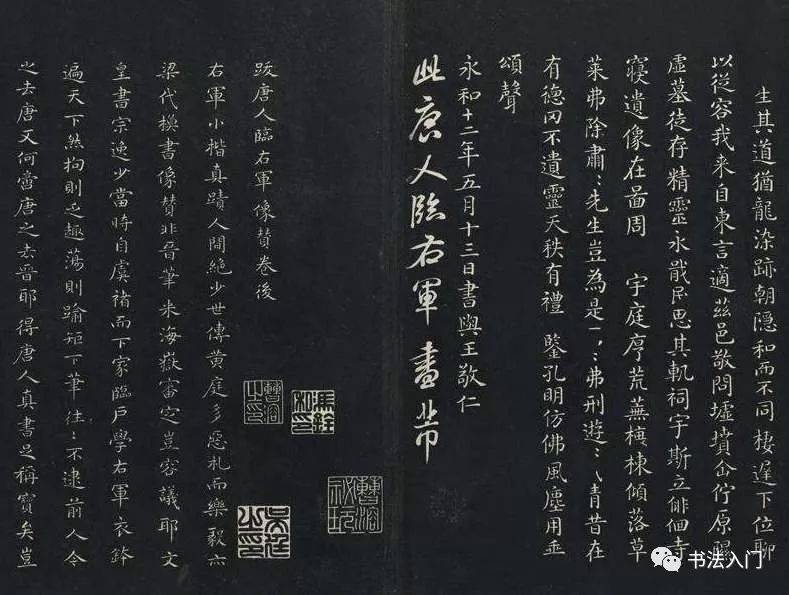 生其道猶龍染跡朝隱和而不同棲遲下位聊
以從容我来自東言適茲邑敬問墟墳企佇原隰
虛墓徒存精靈永戢民思其軌祠宇斯立俳佪寺
寢遺像在啚周 宇庭序荒蕪榱棟傾落草
萊弗除肅:先生豈為是一:弗刑遊:乀青昔在
有德罔不遺靈天秩有禮 鍳孔明仿佛風塵用垂
頌聲
永和十二年五月十三日書與王敬仁
此唐人臨右軍畫
跋唐人臨右軍像贊卷後
右軍小楷真蹟人間絕少世傳黄庭多惡札而樂毅亦
梁代模書像贊非晉筆米海嶽審定豈容議耶文
皇書宗逸少當時自虞褚而下家臨戶學右軍衣鉢
遍天下然拘則乏趣蕩則踰矩下筆往:不逮前人今
之去唐又何啻唐之去晉耶得唐人真書足稱寶矣豈
曹溶之印
曹溶秘玩
吴廷之印
书法入门